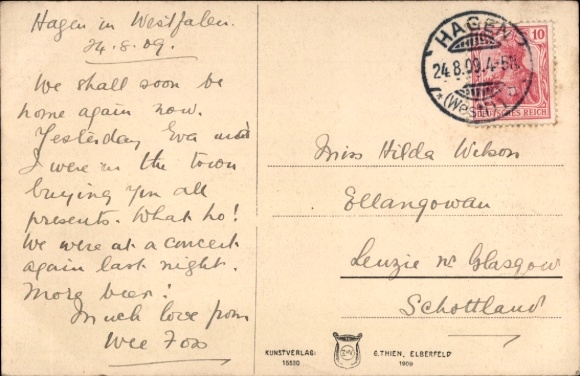 Hagen in Westfalen.
24.8.09.
We shall soon be
home again now.
Yesterday Eva and
I were in the town
buying you all
presents. What ho!
We were at a concert
again last night.
More beer!
Much love from
Wee Fox
HAGEN
24.8.09.4-5N.
*(Westf.)
10
DEUTSCHES REICH
Miss Hilda Watson
Ellangowan
Lenzie nr Glasgow
Schottland
KUNSTVERLAG: G. THIEN, ELBERFELD
15530 1909